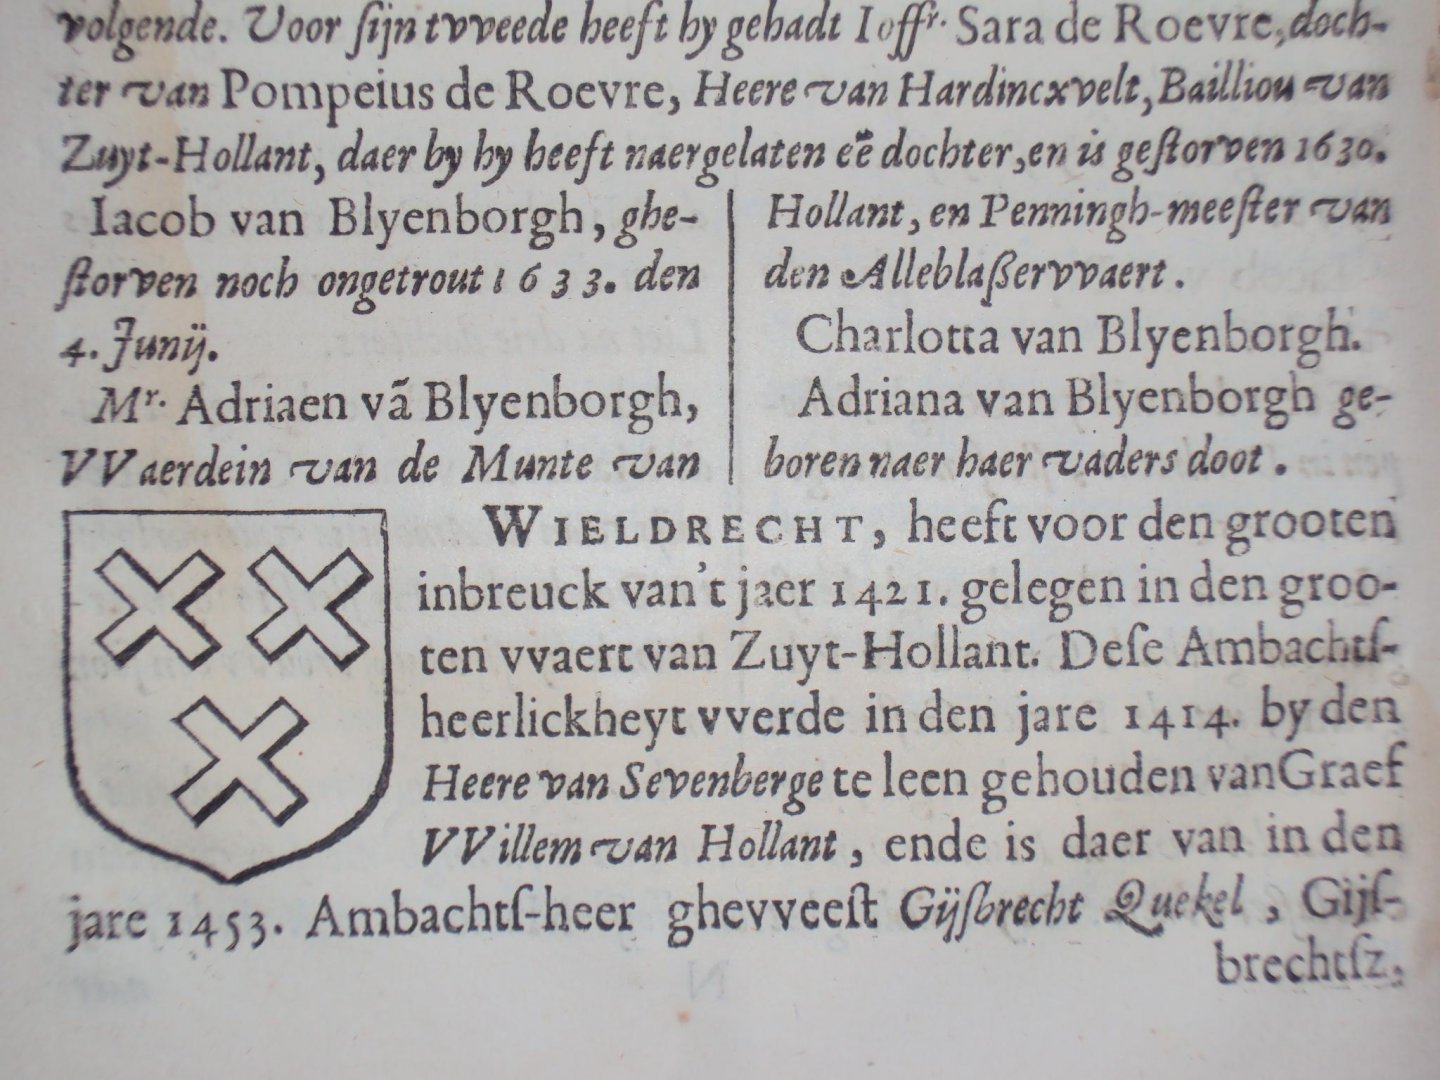 volgende. Voor ſijn tvveede heeft hy gehadt Ioffr. Sara de Roevre, doch-
ter van Pompeius de Roevre, Heere van Hardincxvelt, Bailliou van
Zuyt-Hollant, daer by hy heeft naergelaten eē dochter, en is geſtorven 1630.
Iacob van Blyenborgh, ghe-
ſtorven noch ongetrout 1633. den
4. Junij.
Mr. Adriaen vã Blyenborgh,
VVaerdein van de Munte van
Hollant, en Penningh-meeſter van
den Alleblaßervvaert.
Charlotta van Blyenborgh.
Adriana van Blyenborgh ge-
boren naer haer vaders doot.
WIELDRECHT, heeft voor den grooten
inbreuck van't jaer 1421. gelegen in den groo-
ten vvaert van Zuyt-Hollant. Deſe Ambachtſ-
heerlickheyt vverde in den jare 1414. by den
Heere van Sevenberge te leen gehouden van Graef
VVillem van Hollant, ende is daer van in den
jare 1453. Ambachtſ-heer ghevveeſt Gijſbrecht Quekel, Gijſ-
brechtſz.